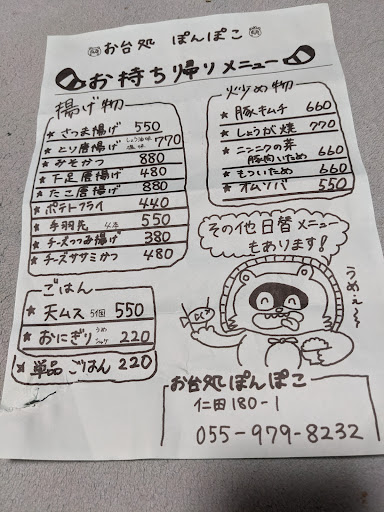 お台処 ぽんぽこ
お持ち帰りメニュー
揚げ物
★ さつま揚げ 550
★ とり唐揚げ しょうゆ味 塩味 770
★ みそかつ 880
★ 下足唐揚げ 480
★ たこ唐揚げ 880
★ ポテトフライ 440
★ 手羽先 4本 550
★ チーズつつみ揚げ 380
★ チーズササミかつ 480
ごはん
★ 天ムス 5個 550
★ おにぎり うめ シャケ 220
★ 単品ごはん 220
炒め物
★ 豚キムチ 660
★ しょうが焼 770
★ ニンニクの芽
豚肉いため 660
★ もついため 660
★ オムソバ 550
その他日替メニュー
もあります!
うめぇ〜
お台処ぽんぽこ
仁田180-1
055-979-8232